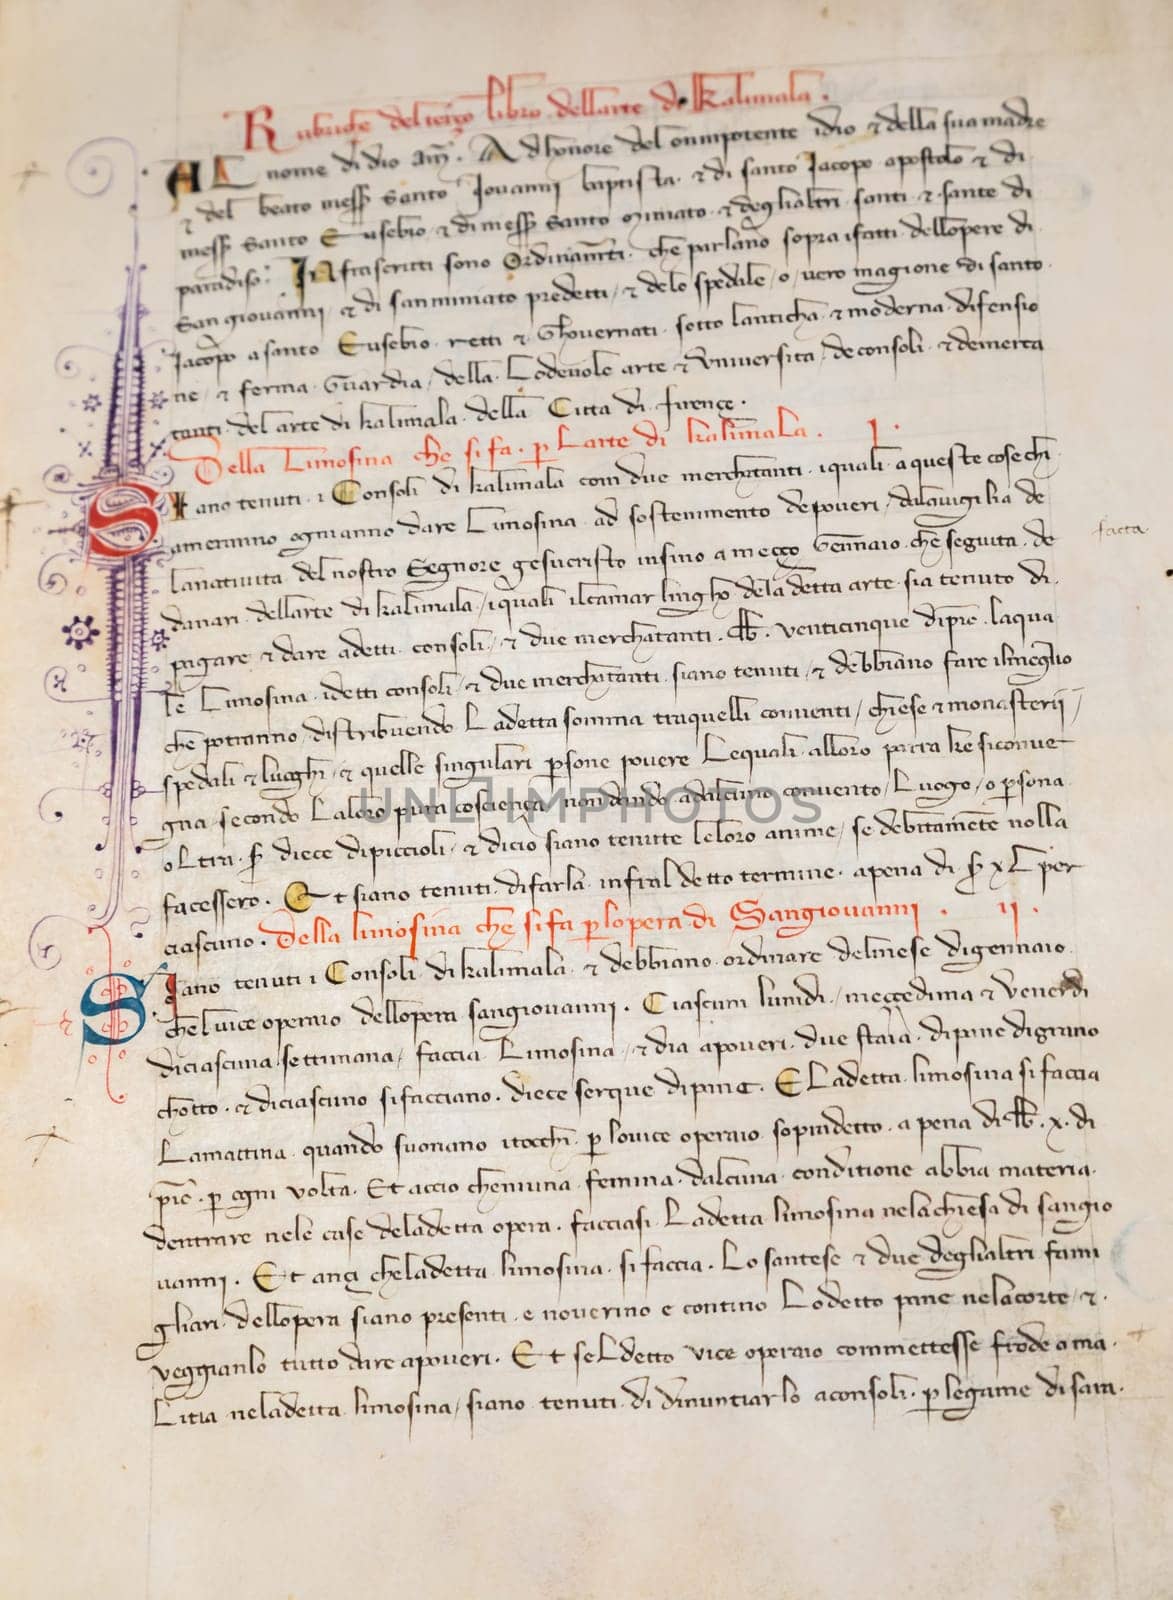 Rubriche del terzo libro dellarte di Kalimala .
AL nome di dio Am̄ . Ad honore del omnipotente idio & della sua madre
& del beato mess̄ Santo Iovanni baptista · & di santo Iacopo apostolo & di
mess̄ Santo Eusebio & di mess̄ Santo Miniato & deglialtri santi & sante di
paradiso : Infrascritti sono Ordinam̄ti · che parlano sopra ifatti dellopere di
San giovanni & di sanminiato predetti / & delo spedale / o / vero magione di santo
Iacopo asanto Eusebio · retti & Ghovernati · sotto lanticha & moderna difensio
ne / & ferma Guardia / della Lodevole arte & Universita / deconsoli & demerca
tanti · del arte di kalimala · della Citta di firençe ·
Della Limosina che si fa · p Larte di kalimala . I .
Siano tenuti · i Consoli di kalimala com due merchatanti · iquali aqueste cose chi
ameranno ogni anno dare Limosina ad sostenimento depoveri / dalavigilia de
lanativita del nostro Segnore gesucristo insino a meçço Gennaio · che seguita · de
danari · dellarte di kalimala / iquali ilcamarlingho deladetta arte sia tenuto di
pagare & dare adetti consoli / & due merchatanti · lb̄ · venticinque dipic̄ · laqua
le Limosina · idetti consoli / & due merchatanti siano tenuti / & debbiano fare ilmeglio
che potranno / distribuendo Ladetta somma traquelli conventi / chiese & monasterii /
spedali & luoghi / & quelle singulari psone povere Lequali alloro parra ke siconve
gna / secondo Laloro pura coscienza / non dando adalcuno convento / Luogo / o psona
oltra · s̄ diece dipiccioli / & dicio siano tenute leloro anime / se debitamente nolla
facessero . Et siano tenuti difarla infral detto termine · apena di s̄ xL per
ciascuno . Della limosina che si fa p lopera di Sangiovanni . II .
Siano tenuti i Consoli di kalimala & debbiano ordinare delmese digennaio
chelvice operaio dellopera sangiovanni . Ciascun lunidi / meççedima & venerdi
diciascuna settimana / faccia Limosina / & dia apoveri due staia dipane digrano
chotto · & diciascuno sifacciano · diece serque dipane . E Ladetta limosina sifaccia
Lamattina quando suonano itocchi p lovice operaio sopradetto · a pena di lb̄ · x · di
pic̄ · p ogni volta · Et accio cheniuna femina dalcuna conditione abbia materia
dentrare nele case deladetta opera · facciasi Ladetta limosina nelachiesa di sangio
vanni . Et ança cheladetta limosina sifaccia · Lo santese & due deglialtri fami
gliari dellopera siano presenti · e noverino e contino Lodetto pane nelacorte / & ·
veggianlo tutto dare apoveri . Et seLdetto vice operaio commettesse frode o ma
Litia neladetta limosina / siano tenuti di dinuntiarlo aconsoli · p legame di sara
facta
UNLIMPHOTOS